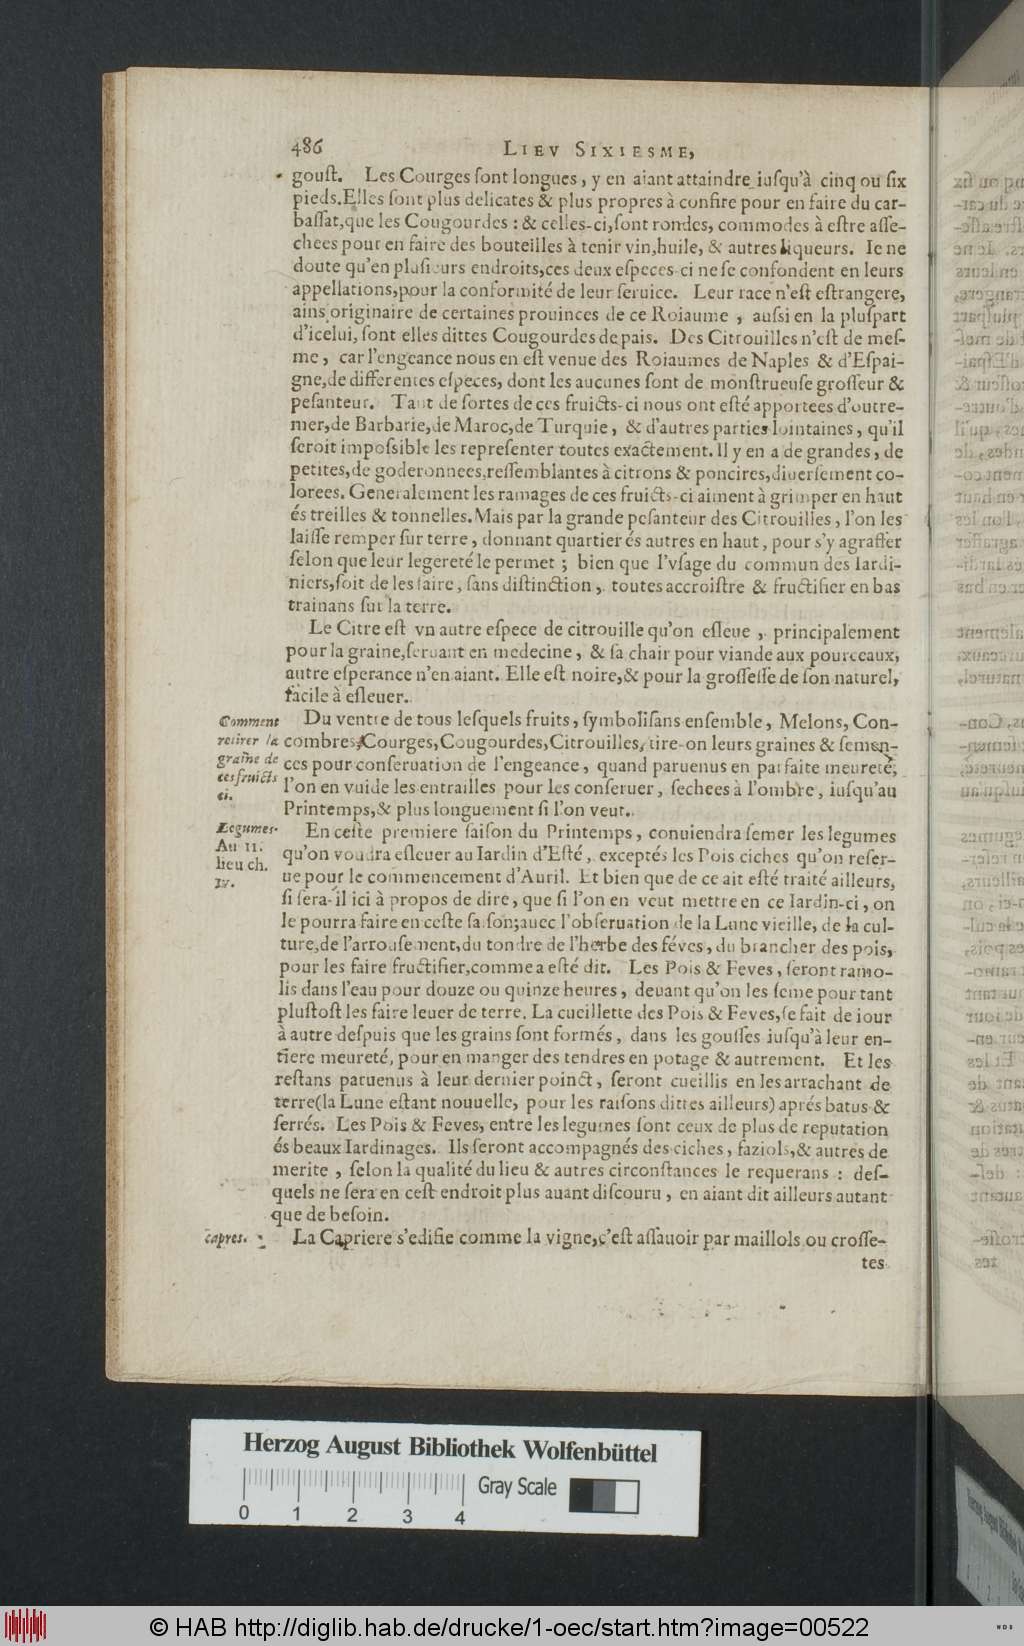 486 LIEV SIXIESME,
gouſt. Les Courges ſont longues, y en aiant attaindre iuſqu'à cinq ou ſix
pieds. Elles ſont plus delicates & plus propres à confire pour en faire du car-
baſſat, que les Cougourdes : & celles-ci, ſont rondes, commodes à eſtre aſſe-
chees pour en faire des bouteilles à tenir vin, huile, & autres liqueurs. Ie ne
doute qu'en pluſieurs endroits, ces deux eſpeces-ci ne ſe confondent en leurs
appellations, pour la conformité de leur ſeruice. Leur race n'eſt eſtrangere,
ains originaire de certaines prouinces de ce Roiaume, auſsi en la pluſpart
d'icelui, ſont elles dittes Cougourdes de païs. Des Citrouilles n'eſt de meſ-
me, car l'engeance nous en eſt venue des Roiaumes de Naples & d'Eſpai-
gne, de differentes eſpeces, dont les aucunes ſont de monſtrueuſe groſſeur &
peſanteur. Tant de ſortes de ces fruicts-ci nous ont eſté apportees d'outre-
mer, de Barbarie, de Maroc, de Turquie, & d'autres parties lointaines, qu'il
ſeroit impoſsible les repreſenter toutes exactement. Il y en a de grandes, de
petites, de goderonnees, reſſemblantes à citrons & poncires, diuerſement co-
lorees. Generalement les ramages de ces fruicts-ci aiment à grimper en haut
és treilles & tonnelles. Mais par la grande peſanteur des Citrouilles, l'on les
laiſſe remper ſur terre, donnant quartier és autres en haut, pour s'y agraffer
ſelon que leur legereté le permet ; bien que l'vſage du commun des Iardi-
niers, ſoit de les faire, ſans diſtinction, toutes accroiſtre & fructifier en bas
trainans ſur la terre.
Le Citre eſt vn autre eſpece de citrouille qu'on eſleue, principalement
pour la graine, ſeruant en medecine, & ſa chair pour viande aux pourceaux,
autre eſperance n'en aiant. Elle eſt noire, & pour la groſſeſſe de ſon naturel,
facile à eſleuer.
Comment
retirer la
graine de
ces fruicts
ci.
Du ventre de tous leſquels fruits, ſymboliſans enſemble, Melons, Con-
combres, Courges, Cougourdes, Citrouilles, tire-on leurs graines & ſemen-
ces pour conſeruation de l'engeance, quand paruenus en parfaite meureté,
l'on en vuide les entrailles pour les conſeruer, ſechees à l'ombre, iuſqu'au
Printemps, & plus longuement ſi l'on veut.
Legumes.
Au 11.
lieu ch.
iv.
En ceſte premiere ſaiſon du Printemps, conuiendra ſemer les legumes
qu'on voudra eſleuer au Iardin d'Eſté, exceptés les Pois ciches qu'on reſer-
ue pour le commencement d'Auril. Et bien que de ce ait eſté traité ailleurs,
ſi ſera-il ici à propos de dire, que ſi l'on en veut mettre en ce Iardin-ci, on
le pourra faire en ceſte ſaiſon; auec l'obſeruation de la Lune vieille, de la cul-
ture, de l'arrouſement, du tondre de l'herbe des féves, du brancher des pois,
pour les faire fructifier, comme a eſté dit. Les Pois & Feves, ſeront ramo-
lis dans l'eau pour douze ou quinze heures, deuant qu'on les ſeme pour tant
pluſtoſt les faire leuer de terre. La cueillette des Pois & Feves, ſe fait de iour
à autre deſpuis que les grains ſont formés, dans les gouſſes iuſqu'à leur en-
tiere meureté, pour en manger des tendres en potage & autrement. Et les
reſtans paruenus à leur dernier poinct, ſeront cueillis en les arrachant de
terre (la Lune eſtant nouuelle, pour les raiſons dittes ailleurs) aprés batus &
ſerrés. Les Pois & Feves, entre les legumes ſont ceux de plus de reputation
és beaux Iardinages. Ils ſeront accompagnés des ciches, faziols, & autres de
merite, ſelon la qualité du lieu & autres circonſtances le requerans : deſ-
quels ne ſera en ceſt endroit plus auant diſcouru, en aiant dit ailleurs autant
que de beſoin.
Capres.
La Capriere s'edifie comme la vigne, c'eſt aſſauoir par maillols ou croſſe-
tes
Herzog August Bibliothek Wolfenbüttel
Gray Scale
0 1 2 3 4
© HAB http://diglib.hab.de/drucke/1-oec/start.htm?image=00522